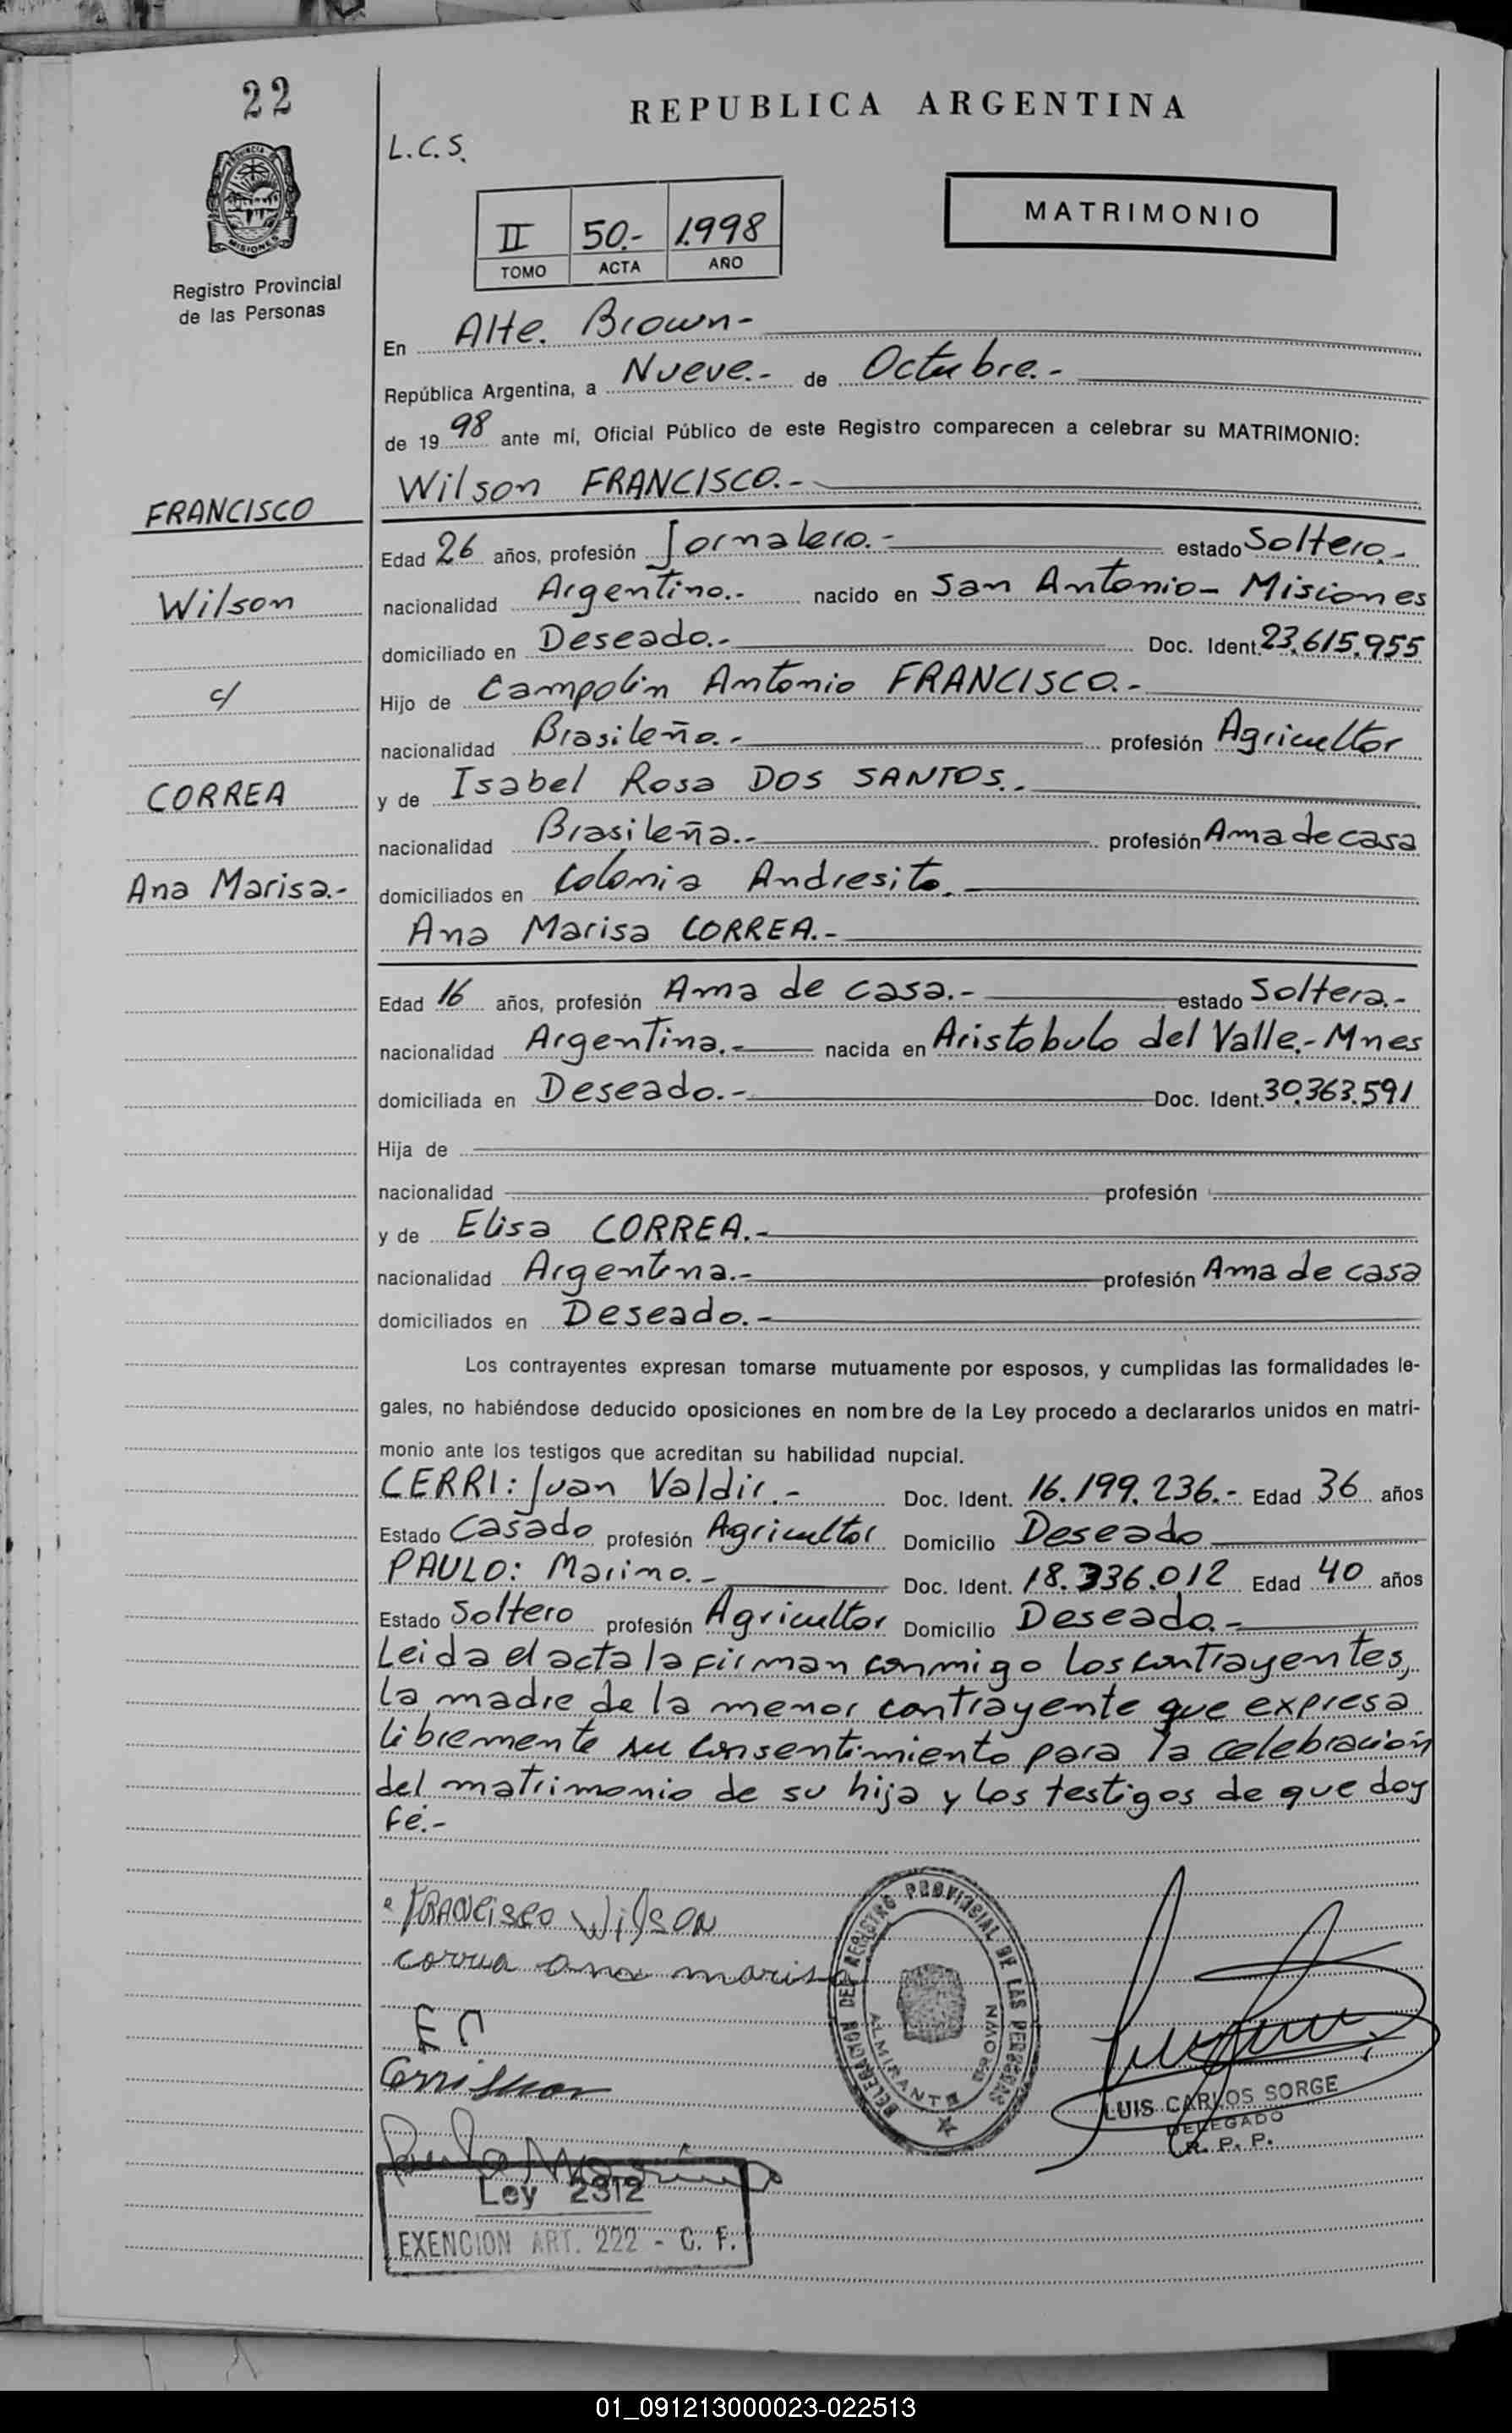 22
REPUBLICA ARGENTINA
L.C.S.
PROVINCIA DE
MISIONES
Registro Provincial
de las Personas
II 50.- 1998
TOMO ACTA AÑO
MATRIMONIO
En Alte. Brown-
República Argentina, a Nueve.- de Octubre.-
de 1998 ante mí, Oficial Público de este Registro comparecen a celebrar su MATRIMONIO:
FRANCISCO
Wilson
c/
CORREA
Ana Marisa.-
Wilson FRANCISCO.-
Edad 26 años, profesión Jornalero.- estado Soltero.-
nacionalidad Argentino.- nacido en San Antonio- Misiones
domiciliado en Deseado.- Doc. Ident. 23.615.955
Hijo de Campolin Antonio FRANCISCO.-
nacionalidad Brasileño.- profesión Agricultor
y de Isabel Rosa DOS SANTOS.-
nacionalidad Brasileña.- profesión Ama de casa
domiciliados en Colonia Andresito.
Ana Marisa CORREA.-
Edad 16 años, profesión Ama de casa.- estado Soltera.-
nacionalidad Argentina.- nacida en Aristobulo del Valle.- Mnes
domiciliada en Deseado.- Doc. Ident. 30.363.591
Hija de
nacionalidad profesión
y de Elisa CORREA.-
nacionalidad Argentina.- profesión Ama de casa
domiciliados en Deseado.-
Los contrayentes expresan tomarse mutuamente por esposos, y cumplidas las formalidades le-
gales, no habiéndose deducido oposiciones en nombre de la Ley procedo a declararlos unidos en matri-
monio ante los testigos que acreditan su habilidad nupcial.
CERRI: Juan Valdir.- Doc. Ident. 16.199.236.- Edad 36 años
Estado Casado profesión Agricultor Domicilio Deseado
PAULO: Marino.- Doc. Ident. 18.336.012 Edad 40 años
Estado Soltero profesión Agricultor Domicilio Deseado.-
Leida el acta la firman conmigo los contrayentes,
la madre de la menor contrayente que expresa
libremente su consentimiento para la celebración
del matrimonio de su hija y los testigos de que doy
fé.-
FRANCISCO WilSON
correa ana marisa
E C
Cerri Juan
Paulo Marino
DELEGACION DEL REGISTRO PROVINCIAL DE LAS PERSONAS
ALMIRANTE BROWN
LUIS CARLOS SORGE
DELEGADO
R. P. P.
Ley 2312
EXENCION ART. 222 - C. F.
01_091213000023-022513